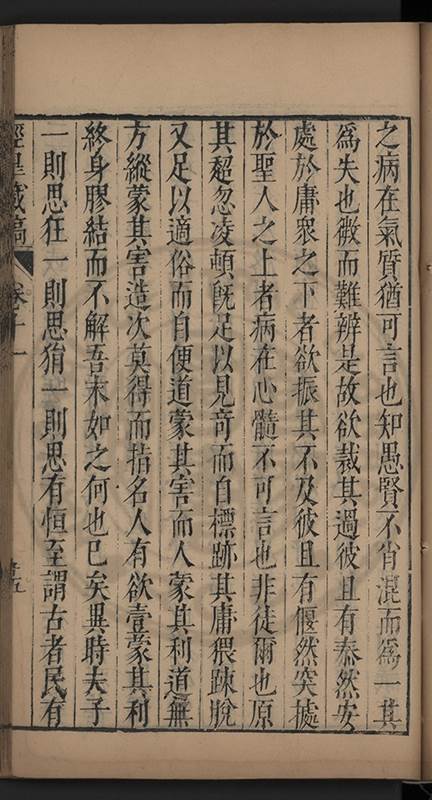 之病在氣質猶可言也知愚賢不肖混而爲一其
爲失也微而難辨是故欲裁其過彼且有泰然安
處於庸衆之下者欲振其不及彼且有偃然突據
於聖人之上者病在心髓不可言也非徒爾也原
其超忽凌頓旣足以見奇而自標跡其庸猥踈脫
又足以適俗而自便道蒙其害而人蒙其利道無
方縱蒙其害造次莫得而指名人有欲壹蒙其利
終身膠結而不解吾末如之何也已矣異時夫子
一則思狂一則思狷一則思有恒至謂古者民有
涇皐藏稿
卷十一